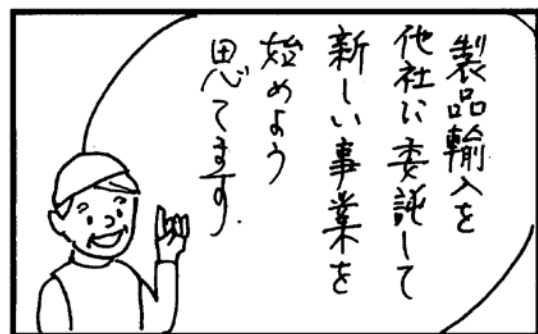 製品輸入を
他社に委託して
新しい事業を
始めよう
思てます.